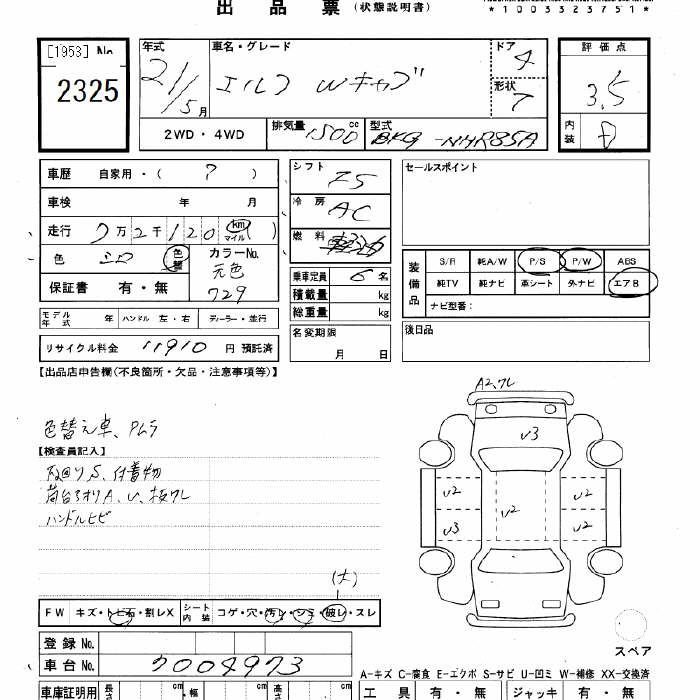 出品票(状態説明書)
*1003323751*
[1953] No
2325
年式
21/5月
車名・グレード
エルフ Wキャブ
ドア
4
形状
7
評価点
3.5
内装
D
2WD・4WD
排気量 1500 cc
型式 BKG-NHR85A
車歴 自家用・( 7 )
車検 年 月
走行 7万2千120 km マイル ( )
色 シロ 色替
カラーNo.
元色
729
保証書 有・無
シフト F5
冷房 AC
燃料 軽油
乗車定員 6 名
積載量 kg
総重量 kg
名変期限
月 日
セールスポイント
装備品
S/R 純A/W P/S P/W ABS
純TV 純ナビ 革シート 外ナビ エアB
ナビ型番：
後日品
モデル年式 年 ハンドル 左・右 ディーラー・並行
リサイクル料金 11910 円 預託済
【出品店申告欄(不良箇所・欠品・注意事項等)】
色替え車、Pムラ
【検査員記入】
下回りS、付着物
荷台アオリA、U、板ワレ
ハンドルヒビ
A2、ワレ
U3
U2 U2
U2
U3 U2
(大)
FW キズ・トビ石・割レX シート内装 コゲ・穴・汚レ・シミ・破レ・スレ
登録No.
車台No. 7004973
スペア
A-キズ C-腐食 E-エクボ S-サビ U-凹ミ W-補修 XX-交換済
車庫証明用 長さ cm 幅 cm 高さ cm
工具 有・無 ジャッキ 有・無